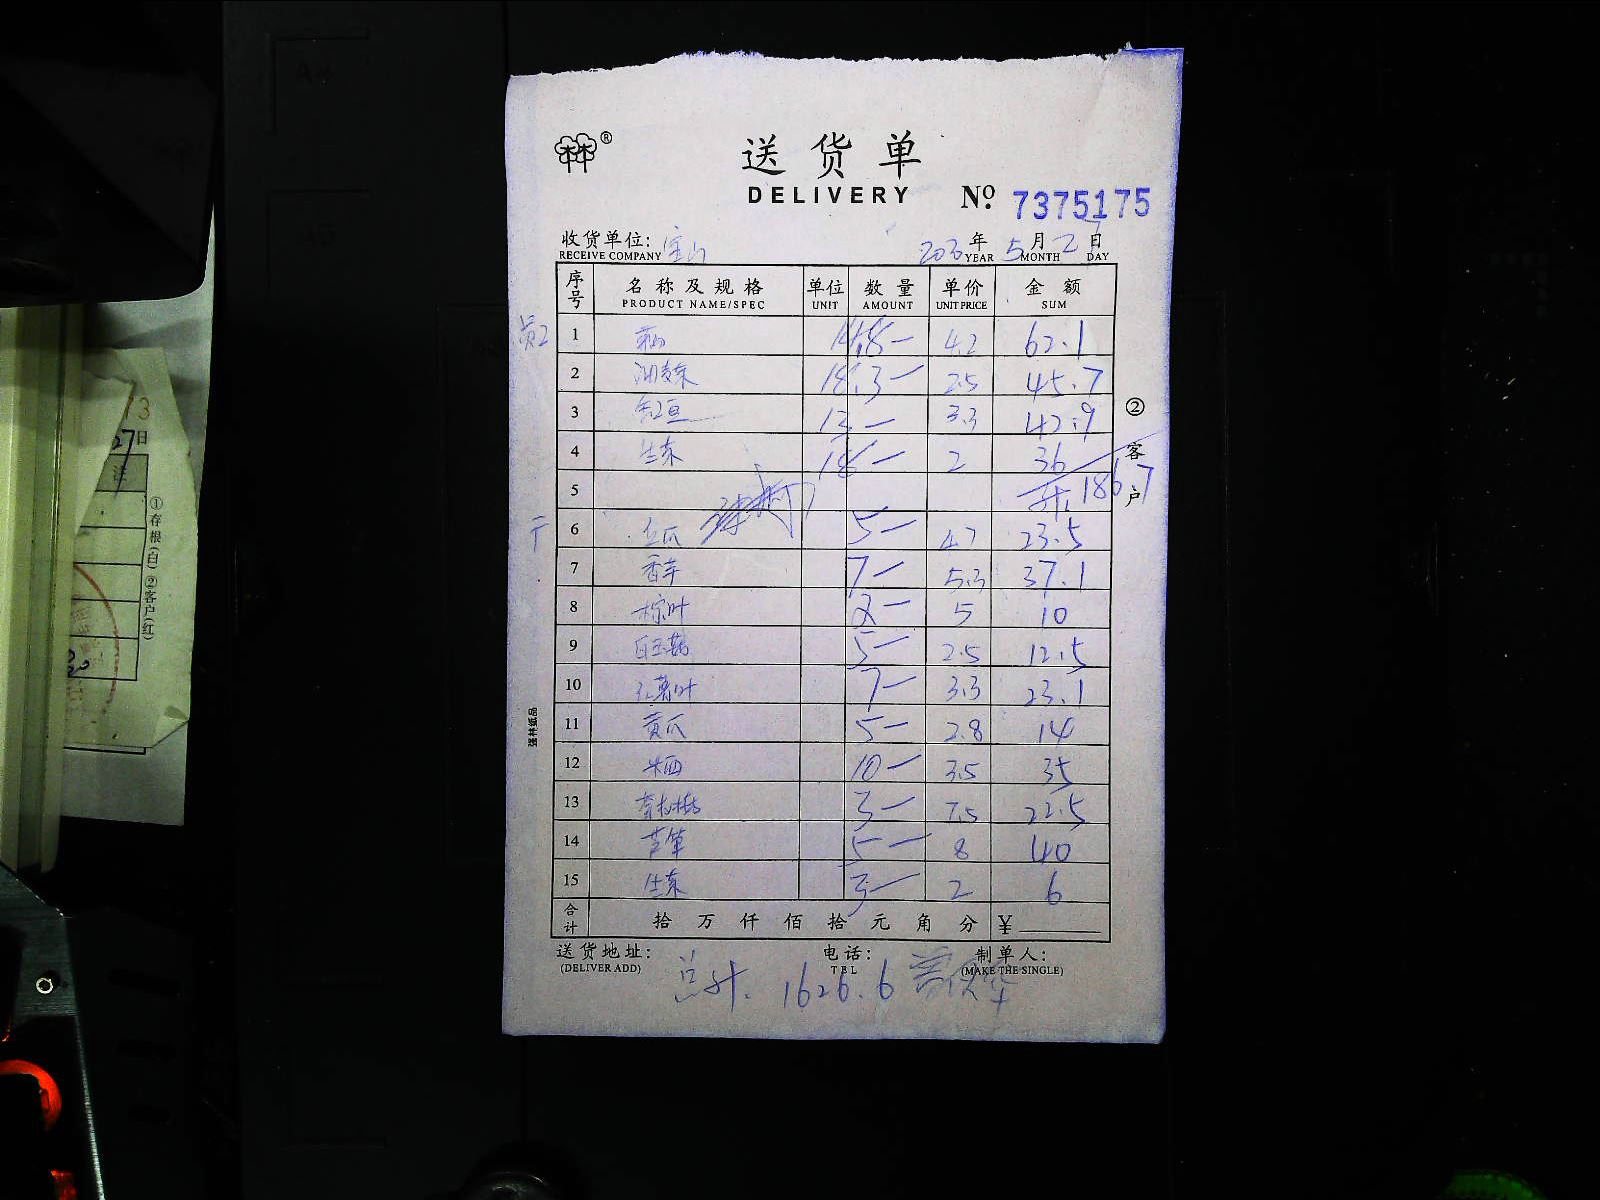 送货单
DELIVERY
Nº 7375175
收货单位: 宝山 年 5月2日
RECEIVE COMPANY YEAR MONTH DAY
序号 名称及规格 单位 数量 单价 金额
PRODUCT NAME/SPEC UNIT AMOUNT UNIT PRICE SUM
员工 1 14.8 4.2 62.1
2 油麦菜 18.3 2.5 45.7
3 13 3.3 42.9
4 生菜 18 2 36
5 计. 186.7
6 5 4.7 23.5
7 香芋 7 5.3 37.1
8 棕叶 2 5 10
9 白玉菇 5 2.5 12.5
10 红薯叶 7 3.3 23.1
11 黄瓜 5 2.8 14
12 10 3.5 35
13 3 7.5 22.5
14 芦笋 5 8 40
15 生菜 3 2 6
合计 拾 万 仟 佰 拾 元 角 分 ¥
送货地址: 电话: 制单人:
(DELIVER ADD) TEL (MAKE THE SINGLE)
总计. 1626.6
②客户
强林纸品
73
27日
注
①存根(白) ②客户(红)